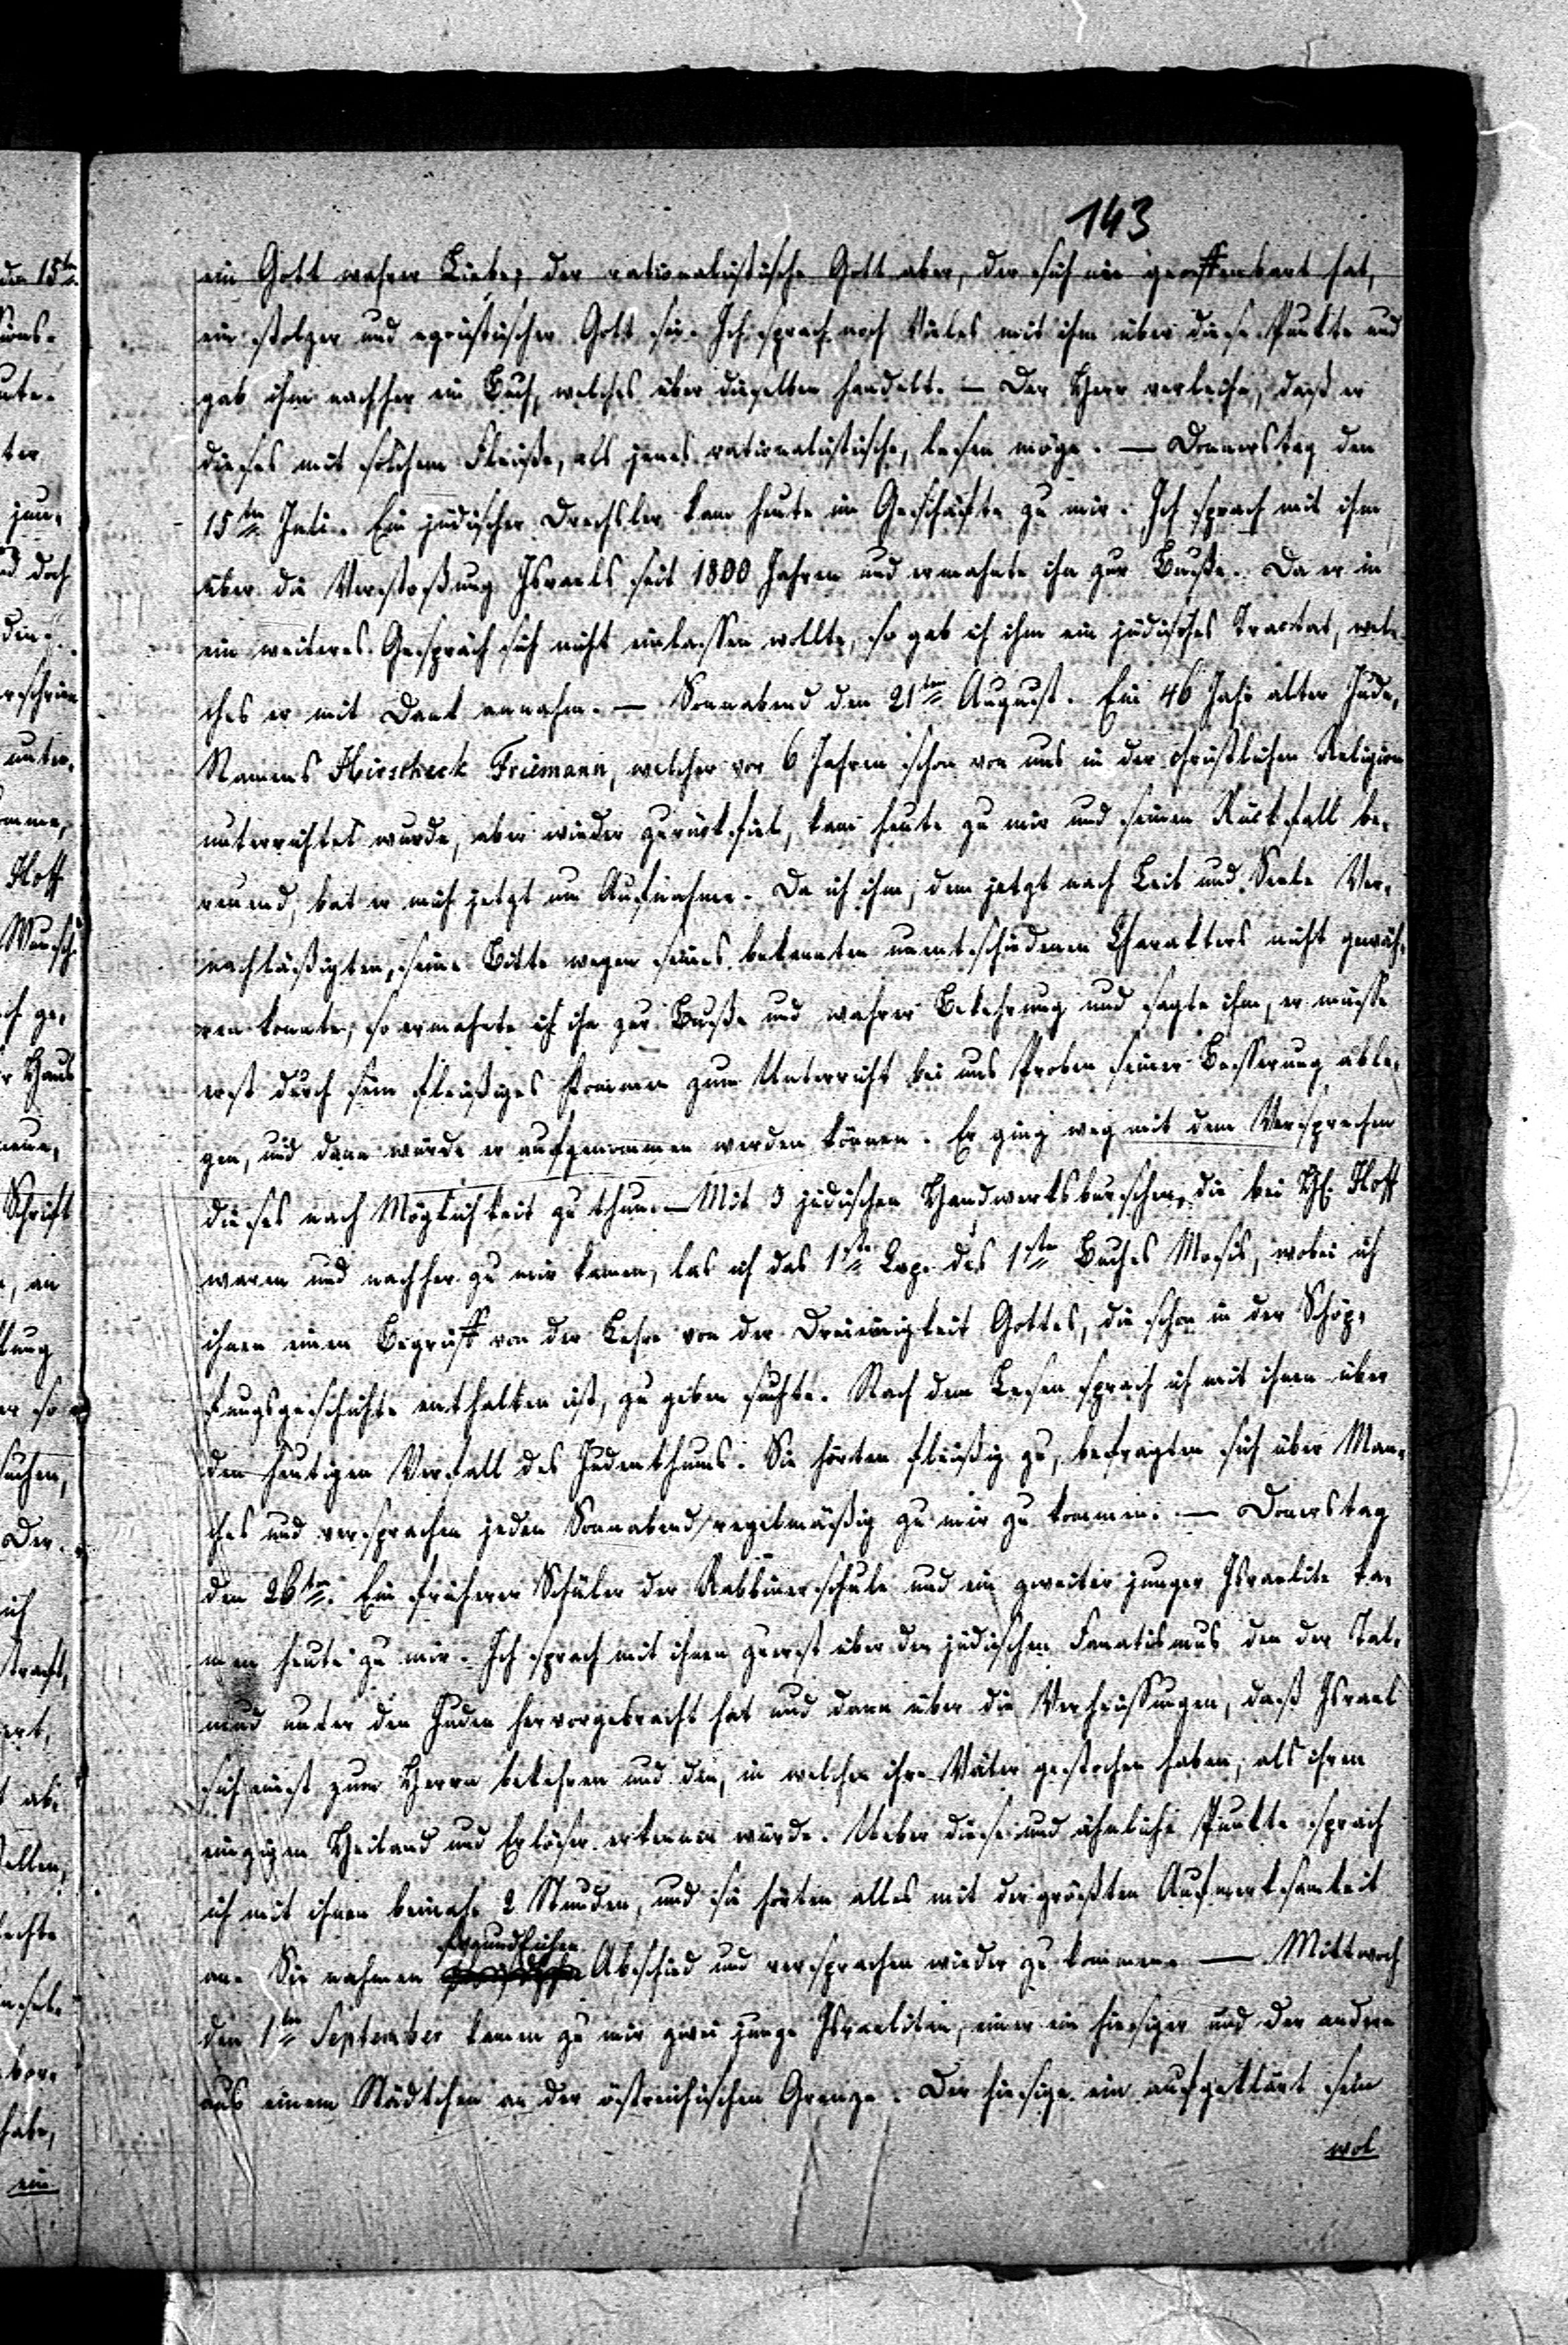 143
ein Gott wahrer Liebe; der rationalistische Gott aber, der sich nie geoffenbart hat,
ein stolzer und egoistischer Gott sei. Ich sprach noch Vieles mit ihm über diese Punkte und
gab ihm nachher ein Buch, welches über dieselben handelt. — Der Herr verleihe, daß er
dieses mit solchem Fleiße, als jenes rationalistische, lesen möge. — Donnerstag den
15ten Juli. Ein jüdischer Drechsler kam heute im Geschäfte zu mir. Ich sprach mit ihm
über die Verstoßung Israels seit 1800 Jahren und ermahnte ihn zur Buße. Da er in
ein weiteres Gespräch sich nicht einlassen wollte, so gab ich ihm ein jüdisches Tractat, wel-
ches er mit Dank annahm. — Sonnabend den 21ten August. Ein 46 Jahr alter Jude,
Namens Hirscheck Friemann, welcher vor 6 Jahren schon von uns in der christlichen Religion
unterrichtet wurde, aber wieder zurückfiel, kam heute zu mir und seinen Rückfall be-
reuend, bat er mich jetzt um Aufnahme. Da ich ihm, dem jetzt nach Leib und Seele Ver-
nachläßigten, seine Bitte wegen seines bekannten unentschiedenen Charakters nicht gewäh-
ren konnte, so ermahnte ich ihn zur Buße und wahrer Bekehrung und sagte ihm, er müsse
erst durch sein fleißiges Kommen zum Unterricht bei uns Proben seiner Besserung able-
gen, und dann würde er aufgenommen werden können. Er ging weg mit dem Versprechen
dieses nach Möglichkeit zu thun. — Mit 3 jüdischen Handwerksburschen, die bei H. Hoff
waren und nachher zu mir kamen, las ich das 1ste Cap. des 1sten Buches Mosis, wobei ich
ihnen einen Begriff von der Lehre von der Dreieinigkeit Gottes, die schon in der Schöp-
fungsgeschichte enthalten ist, zu geben suchte. Nach dem Lesen sprach ich mit ihnen über
den heutigen Verfall des Judenthums. Sie hörten fleißig zu, befragten sich über Man-
ches und versprachen jeden Sonnabend regelmäßig zu mir zu kommen. — Donerstag
den 26ten. Ein früherer Schüler der Rabbinerschule und ein zweiter junger Israelite ka-
men heute zu mir. Ich sprach mit ihnen zuerst über den jüdischen Fanatismus den der Tal-
mud unter den Juden hervorgebracht hat und dann über die Verheissungen, daß Israel
sich einst zum Herrn bekehren und den, in welchen ihre Väter gestochen haben, als ihren
einzigen Heiland und Erlöser erkennen würde. Ueber diese und ähnliche Punkte sprach
ich mit ihnen beinahe 2 Stunden, und sie hörten alles mit der größten Aufmerksamkeit
an. Sie nahmen freundlichen Abschied und versprachen wieder zu kommen. — Mittwoch
den 1ten September kamen zu mir zwei junge Israeliten, einer ein hiesiger und der andere
aus einem Städtchen an der östreichischen Grenze. Der hiesige ein aufgeklärt sein
wol